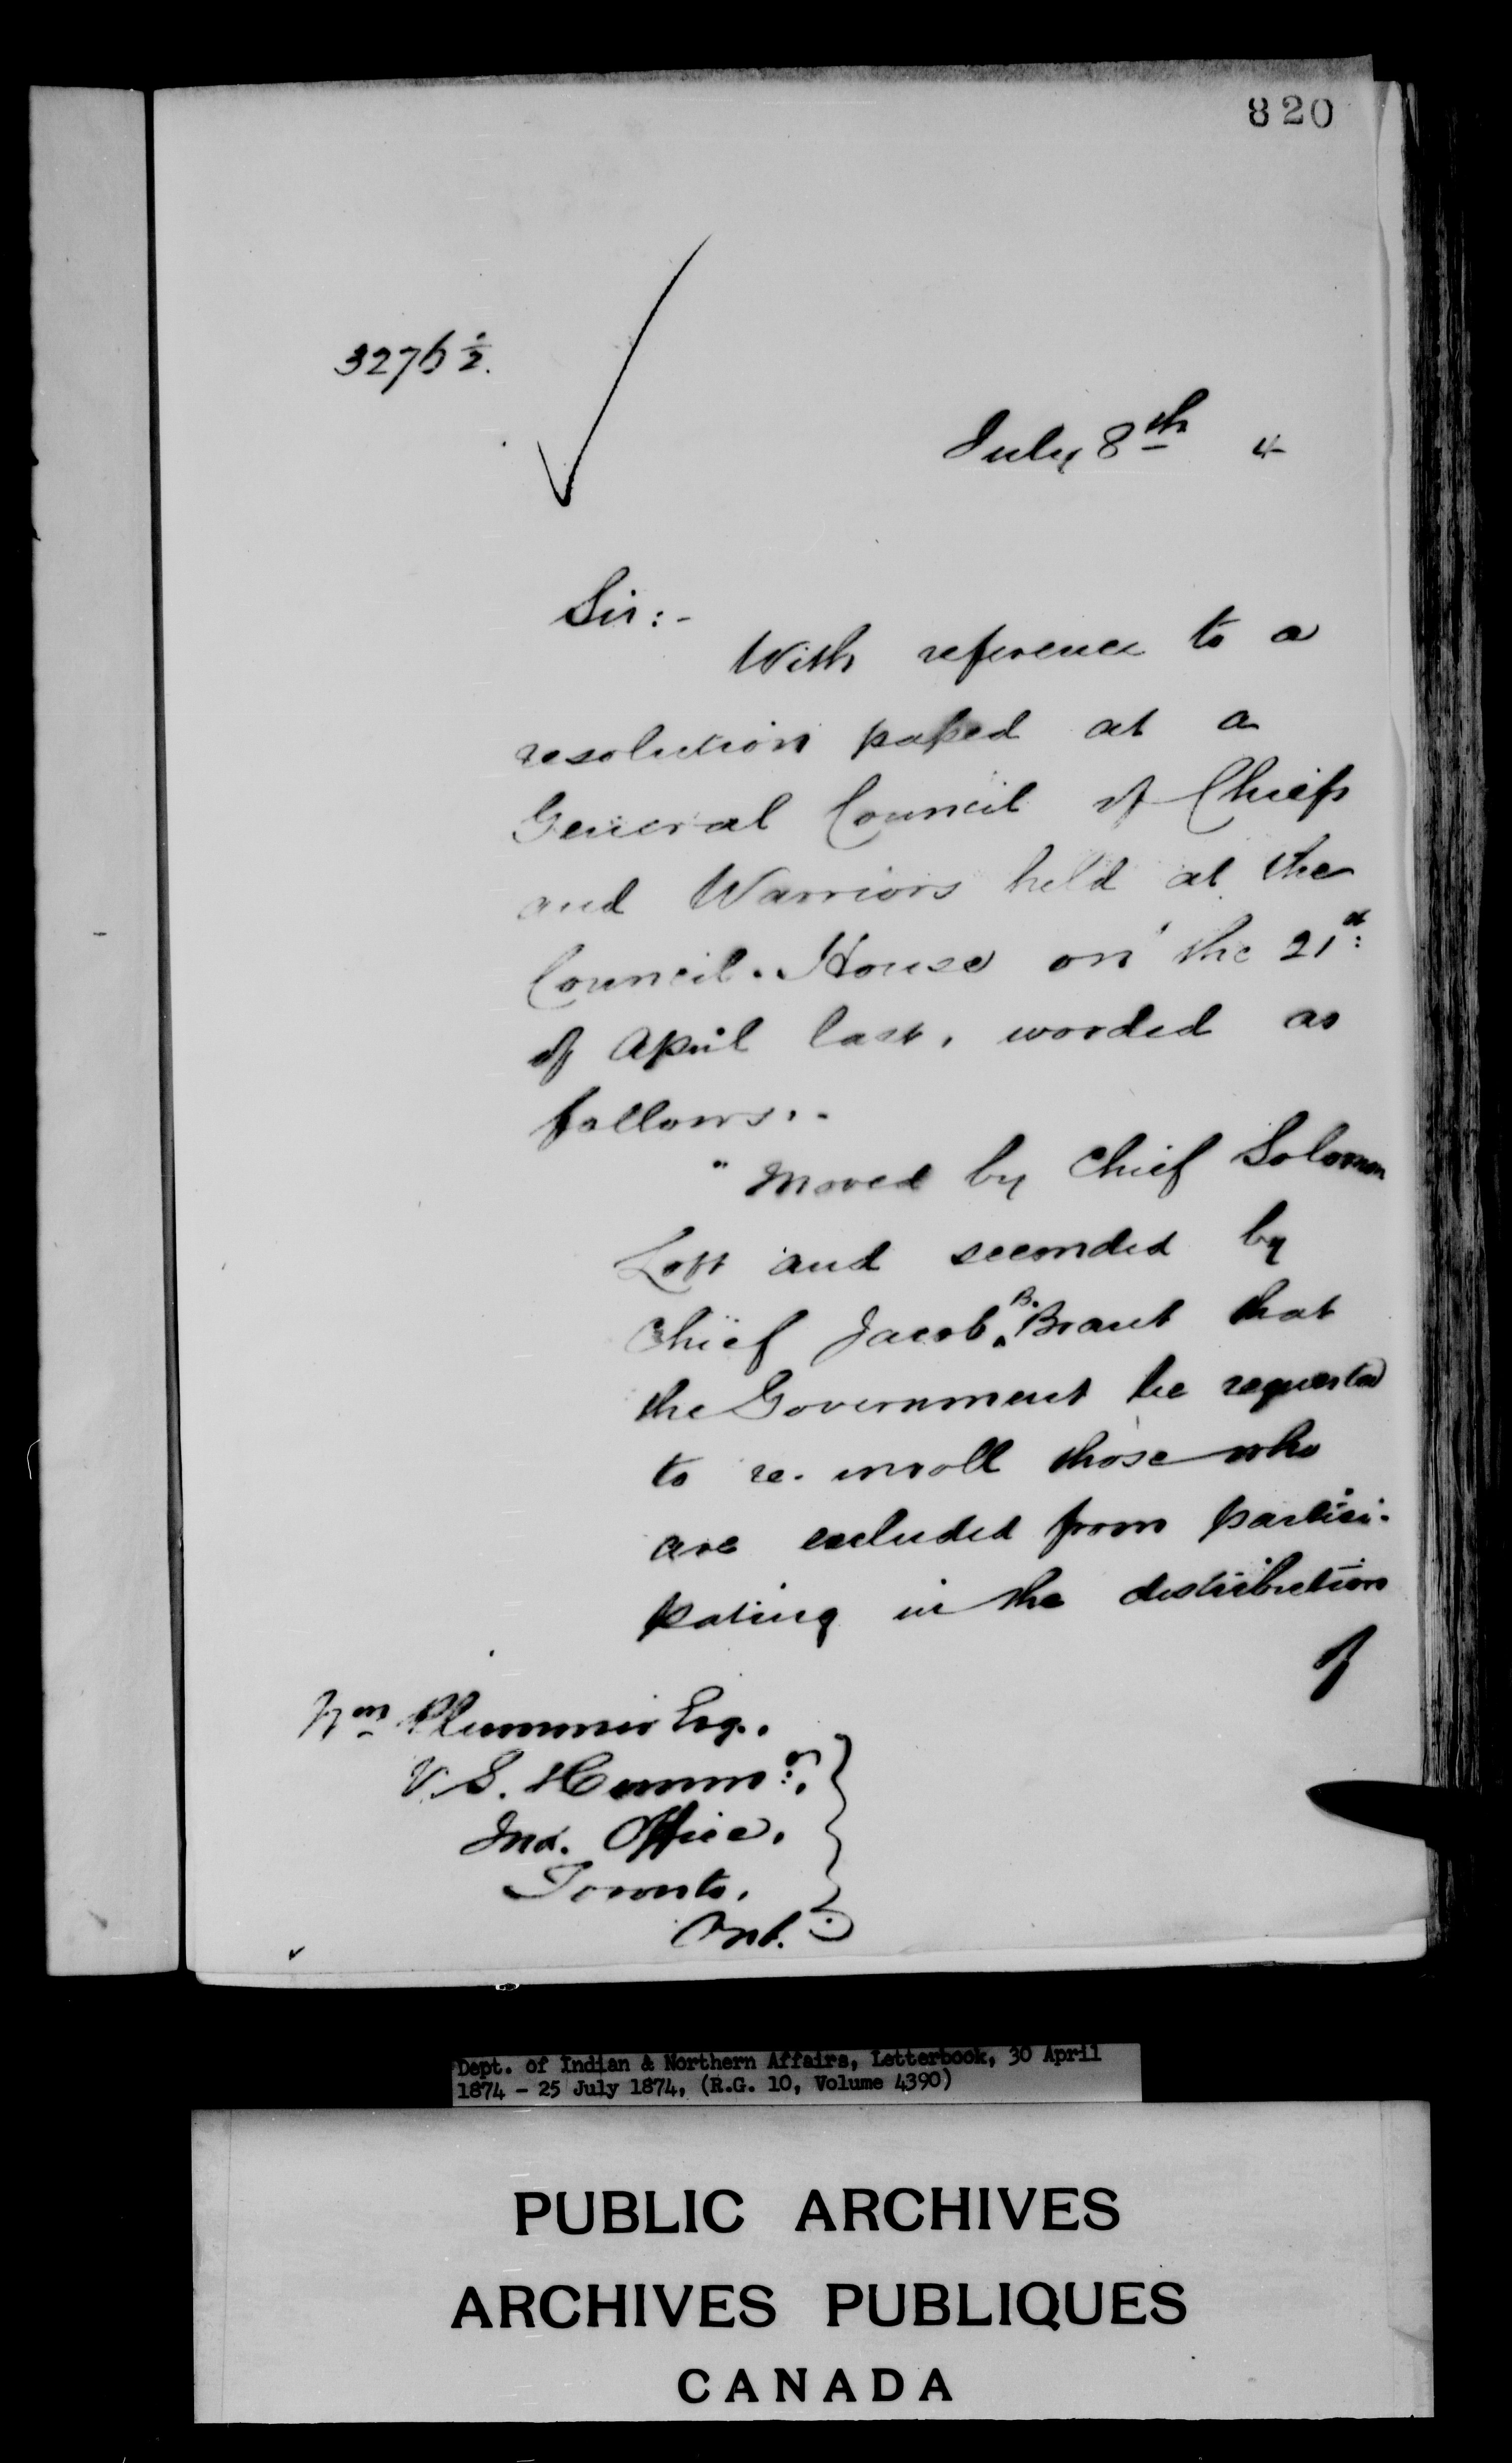 820
3276 1/2.
July 8th 4
Sir:-
With reference to a
resolution passed at a
General Council of Chiefs
and Warriors held at the
Council-House on the 21st:
of April last, worded as
follows:-
"Moved by Chief Solomon
Loft and seconded by
Chief Jacob B. Brant that
the Government be requested
to re-enroll those who
are excluded from partici-
pating in the distribution
of
Wm Plummer Esq.
V. S. Commr.
Ind. Office.
Toronto.
Ont.
Dept. of Indian & Northern Affairs, Letterbook, 30 April
1874 - 25 July 1874, (R.G. 10, Volume 4390)
PUBLIC ARCHIVES
ARCHIVES PUBLIQUES
CANADA